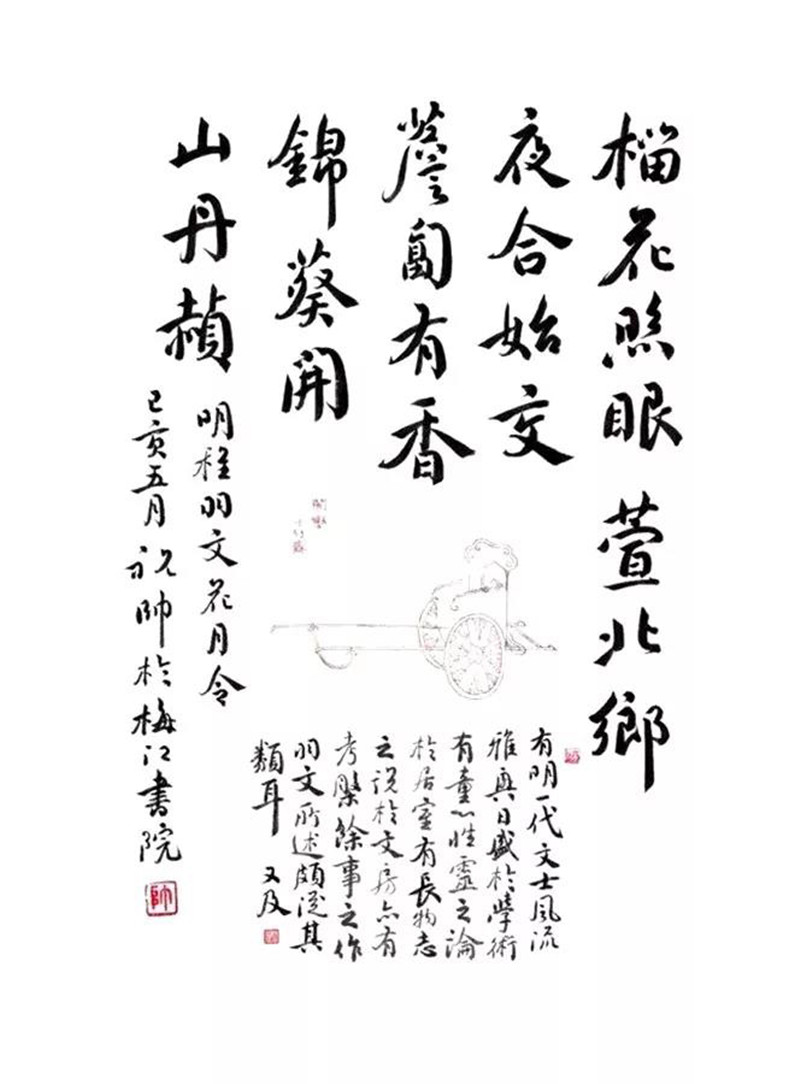 榴花照眼萱北鄉
夜合始交
薝蔔有香
錦葵開
山丹赬
明程羽文花月令
己亥五月祝帥於梅江書院
有明一代文士風流
雅興日盛於學術
有童心性靈之論
於居室有長物志
之說於文房亦有
考槃餘事之作
羽文所述頗從其
類耳 又及
帥